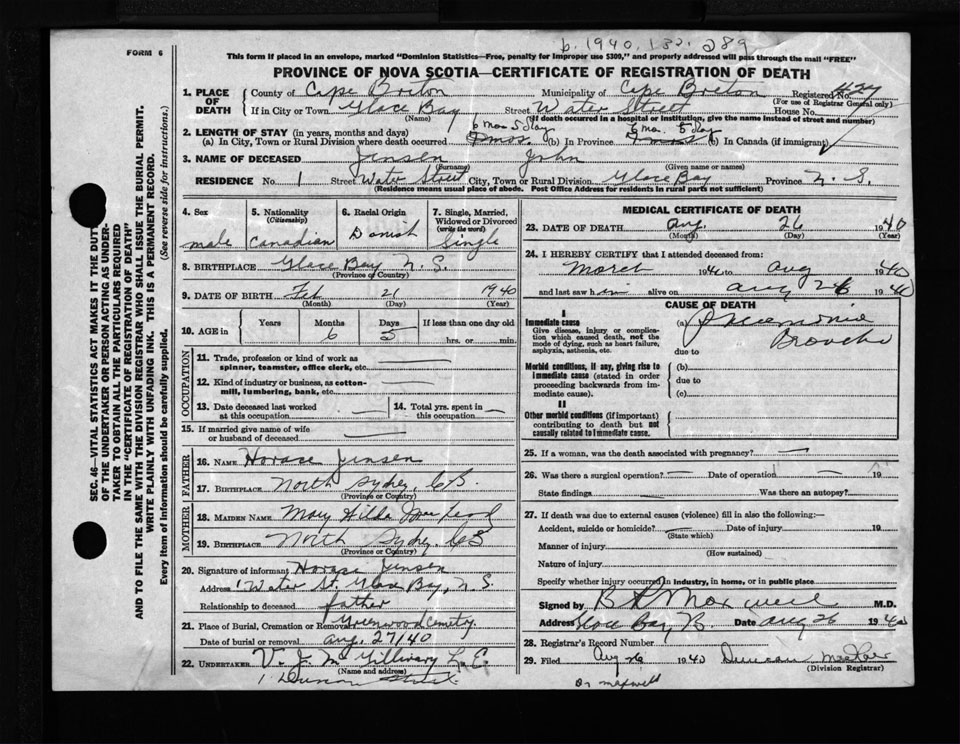 b. 1940. 132. 289
FORM 6
This form if placed in an envelope, marked "Dominion Statistics—Free, penalty for improper use $300," and properly addressed will pass through the mail "FREE"
PROVINCE OF NOVA SCOTIA—CERTIFICATE OF REGISTRATION OF DEATH
1. PLACE OF DEATH
County of Cape Breton Municipality of Cape Breton Registered No. 427
(For use of Registrar General only)
If in City or Town Glace Bay Street Water Street House No.
(Name) (If death occurred in a hospital or institution, give the name instead of street and number)
6 Mos 5 Day 6 Mo. 5 Day
2. LENGTH OF STAY (in years, months and days)
(a) In City, Town or Rural Division where death occurred (b) In Province (b) In Canada (if immigrant)
3. NAME OF DECEASED Jensen John
(Surname) (Given name or names)
RESIDENCE No. 1 Street Water Street City, Town or Rural Division Glace Bay Province N. S.
(Residence means usual place of abode. Post Office Address for residents in rural parts not sufficient)
4. Sex
male
5. Nationality
(Citizenship)
Canadian
6. Racial Origin
Danish
7. Single, Married, Widowed or Divorced
(write the word)
Single
8. BIRTHPLACE Glace Bay N. S.
(Province or Country)
9. DATE OF BIRTH Feb 21 1940
(Month) (Day) (Year)
10. AGE in
Years Months Days If less than one day old
6 5 hrs. or min.
OCCUPATION
11. Trade, profession or kind of work as spinner, teamster, office clerk, etc.
12. Kind of industry or business, as cotton-mill, lumbering, bank, etc.
13. Date deceased last worked at this occupation
14. Total yrs. spent in this occupation
15. If married give name of wife or husband of deceased
FATHER
16. NAME Horace Jensen
17. BIRTHPLACE North Sydney, C.B.
(Province or Country)
MOTHER
18. MAIDEN NAME Mary Hilda
19. BIRTHPLACE North Sydney, C B
(Province or Country)
20. Signature of informant Horace Jensen
Address 1 Water St. Glace Bay, N. S.
Relationship to deceased father
21. Place of Burial, Cremation or Removal Greenwood Cemetry
Date of burial or removal Aug. 27/40
22. UNDERTAKER V. J. McGillivary
(Name and address)
1 Duncan Street.
MEDICAL CERTIFICATE OF DEATH
23. DATE OF DEATH Aug. 26 1940
(Month) (Day) (Year)
24. I HEREBY CERTIFY that I attended deceased from:
March 1940 to Aug 1940
and last saw him alive on Aug 26 1940
CAUSE OF DEATH
I
Immediate cause
Give disease, injury or complication which caused death, not the mode of dying, such as heart failure, asphyxia, asthenia, etc.
(a) Pneumonia
Broncho
due to
Morbid conditions, if any, giving rise to immediate cause (stated in order proceeding backwards from immediate cause).
(b)
due to
(c)
II
Other morbid conditions (if important) contributing to death but not causally related to immediate cause.
25. If a woman, was the death associated with pregnancy?
26. Was there a surgical operation? Date of operation 19
State findings Was there an autopsy?
27. If death was due to external causes (violence) fill in also the following:—
Accident, suicide or homicide? Date of injury 19
(State which)
Manner of injury
(How sustained)
Nature of injury
Specify whether injury occurred in industry, in home, or in public place
Signed by Maxwell M.D.
Address Glace Bay Date Aug 26 1940
28. Registrar's Record Number
29. Filed Aug 26 1940 Duncan
(Division Registrar)
Dr Maxwell
SEC. 46—VITAL STATISTICS ACT MAKES IT THE DUTY OF THE UNDERTAKER OR PERSON ACTING AS UNDERTAKER TO OBTAIN ALL THE PARTICULARS REQUIRED IN THE "CERTIFICATE OF REGISTRATION OF DEATH" AND TO FILE THE SAME WITH THE DIVISION REGISTRAR WHO SHALL ISSUE THE BURIAL PERMIT.
WRITE PLAINLY WITH UNFADING INK. THIS IS A PERMANENT RECORD.
Every item of information should be carefully supplied. (See reverse side for instructions.)